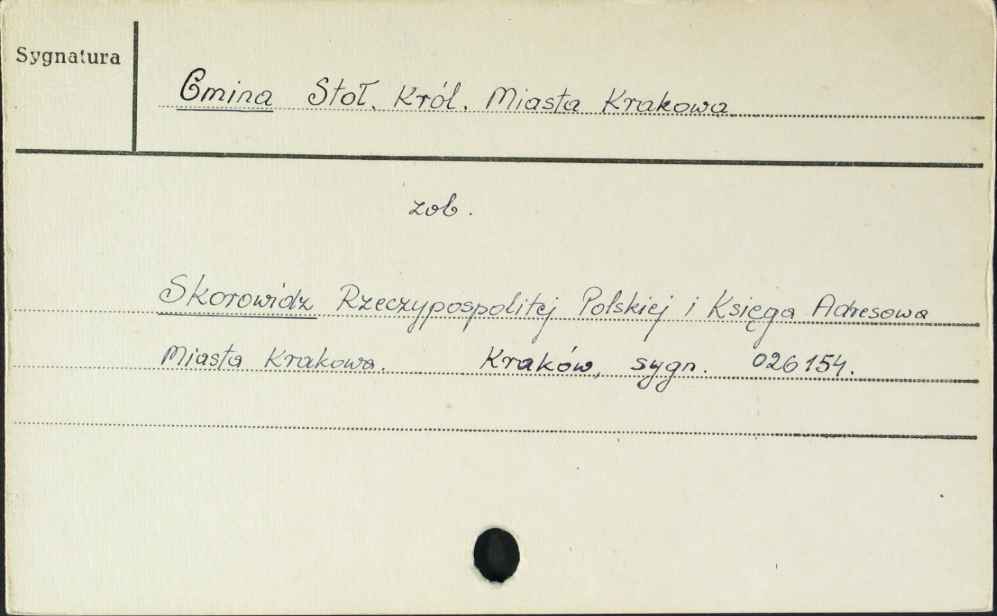 Sygnatura
Gmina Stoł. Król. Miasta Krakowa
zob.
Skorowidz Rzeczypospolitej Polskiej i Księga Adresowa
Miasta Krakowa. Kraków, sygn. 026154.